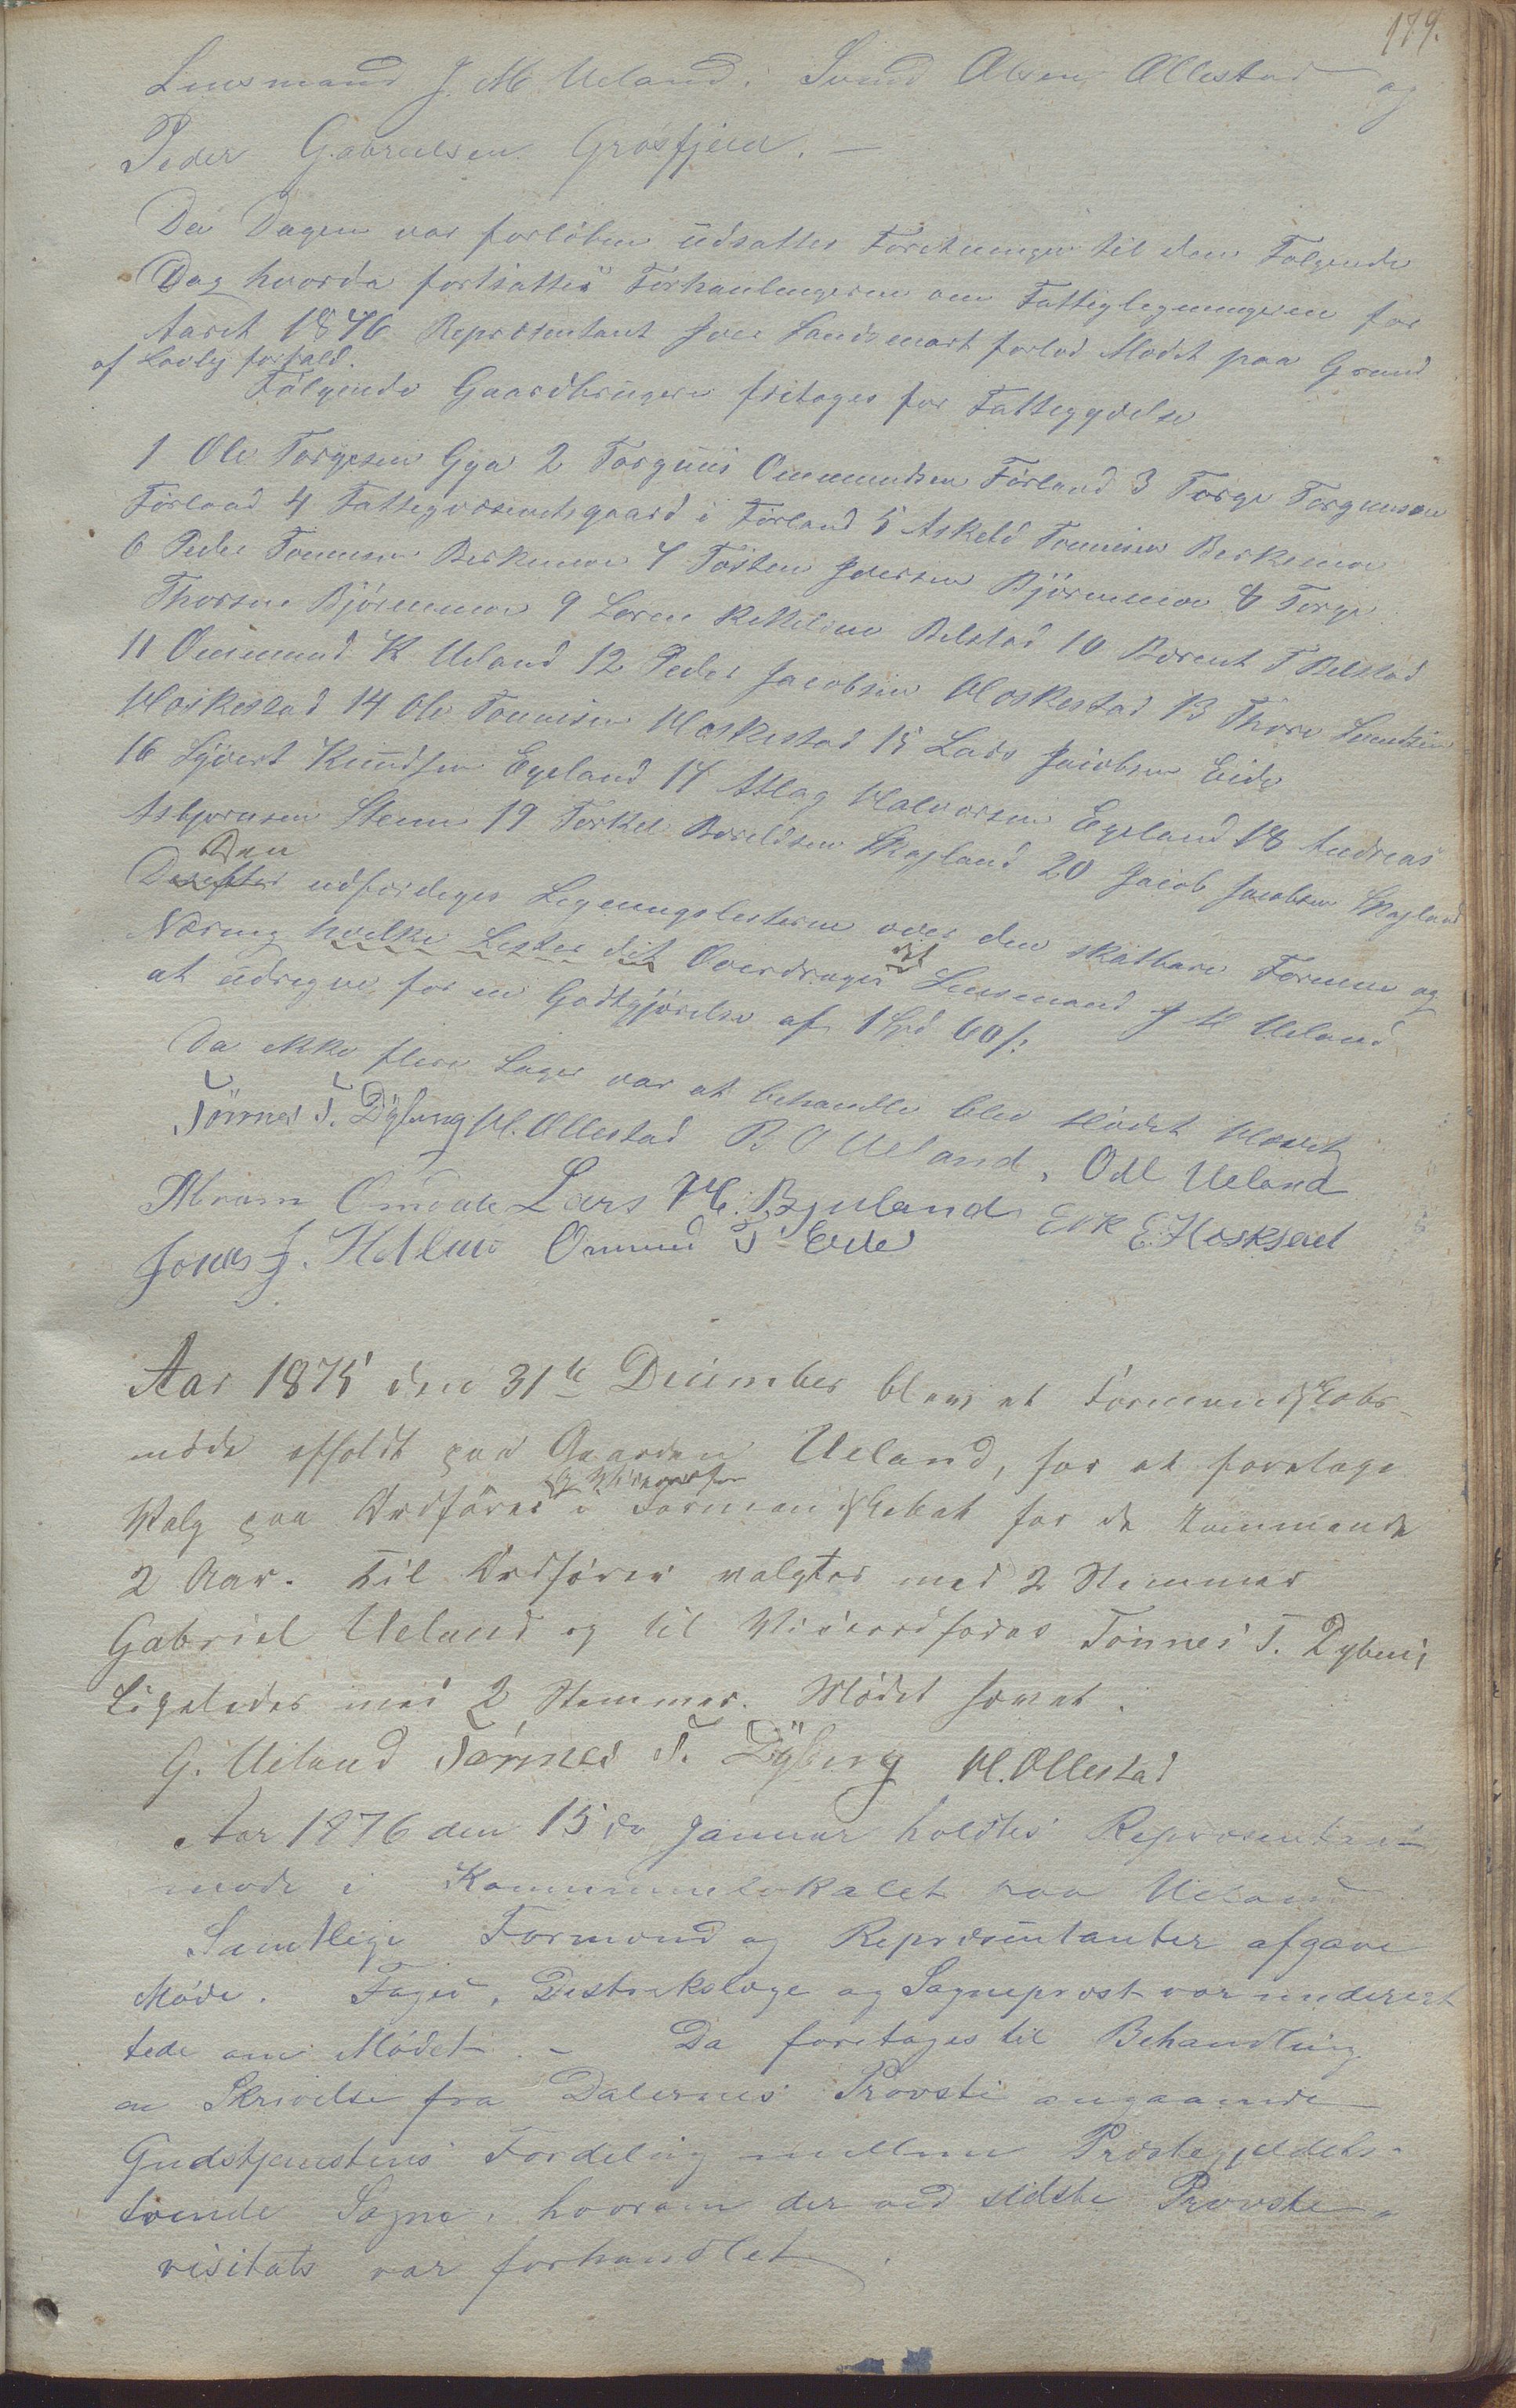 179.
Lensmand J. M. Ueland, Svend Olsen Ollestad og
Peder Gabrielsen Grøsfjeld. —
Da Dagen var forløben udsattes Foretningen til den Følgende
Dag hvorda fortsattes Forhanlingerne om Fattiglegningen for
Aaret 1876 Repræsentant Joen Sandsmark forlod Mødet paa Grund
af Lovlig forfald.
Følgende Gaardbrugere fritages for Fattegydelse
1 Ole Torgesen Gya 2 Torguus Ommundsen Førland 3 Torge Torgusen
Førland 4 Fattegvæsenetsgaard i Førland 5 Askeld Tonnesen Berkemoe
6 Peder Tonnesen Berkemoe 7 Tosten Iversen Bjørnemoe 8 Torge
Thorsen Bjørnemoe 9 Soren Ketelsen Belstad 10 Berent T Belstad
11 Ommund K Ueland 12 Peder Jacobsen Hoskestad 13 Thore Svendsen
Hoskestad 14 Ole Tonnesen Hoskestad 15 Lars Jacobsen Eide
16 Sjovert Knudsen Egeland 17 Atlag Halvorsen Egeland 18 Andreas
Asbjornsen Stene 19 Torkel Boreldsen Skagland 20 Jacob Jacobsen Skagland
Den
Derefter udfærdiges Legningslesterne over den skatbare Formue og
Næring hvelke Lester det Overdrages det Lensmand J M Ueland
at udregne for en Godtgjørelse af 1 Spd 60 s:
Da ikke flere Sager var at behandle blev Mødet Hævet
Tönnes T. Dÿbing H. Ollestad B O Ueland, Odl Ueland
Abram Omdal Lars H. Bjuland Erk E. Hoskstad
Jonas J. Hetlæ Ommund T Eide
Aar 1875 den 31te December blev et Formandskabs-
møde afholdt paa Gaarden Ueland, for at foretage
og Viseordfører
Valg paa Ordfører i Formandskabet for de kommende
2 Aar. Til Ordfører valgtes med 2 Stemmer
Gabriel Ueland og til Viseordfører Tönnes T. Dybing
ligeledes med 2 Stemmer. Mødet hævet.
G. Ueland Tönnes T. Dÿbing H. Ollestad
Aar 1876 den 15de Januar holdtes Repræsentant-
møde i Kommunelokalet paa Ueland
Samtlige Formænd og Repræsentanter afgave
Møde. Foged, Destrekslæge og Sogneprest var underret
tede om Mødet. — Da foretages til Behandling
en Skrivelse fra Dalernes Provsti angaaende
Gudstjenestens Fordeling mellem Præstegjeldets
tvende Sogne, hvorom der ved sidste Provste-
visitats var forhandlet.